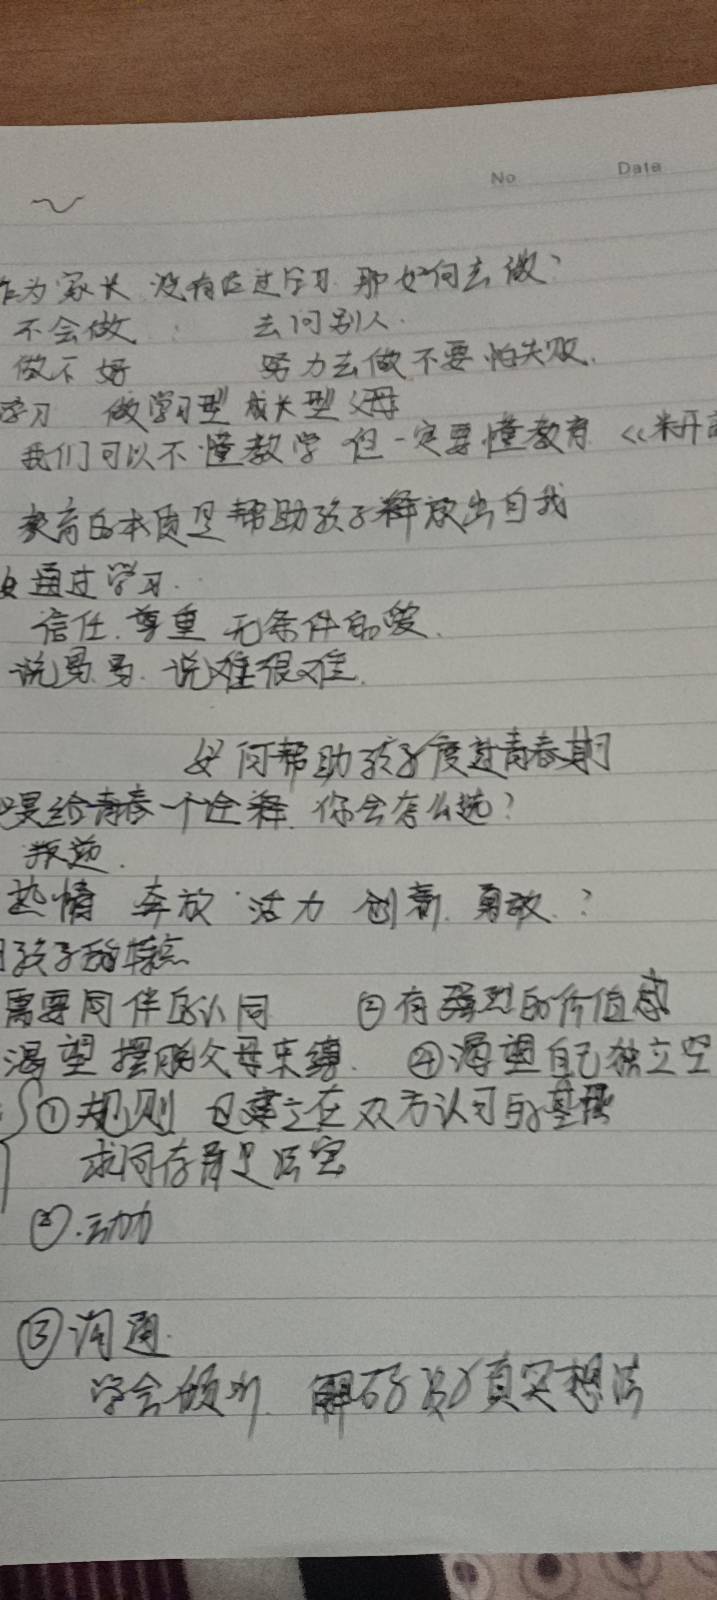 No Date
作为家长 没有 过学习. 那如何去做?
不会做 : 去问别人.
做不好 努力去做 不要怕失败.
学习 做学习型 成长型父母
我们可以不懂教学 但一定要懂教育 《
教育的本质是帮助孩子释放出自我
通过学习.
信任. 尊重 无条件的爱.
说易易. 说难很难.
如何帮助孩子度过青春期
给青春一个诠释. 你会怎么选?
叛逆.
热情 奔放 活力 创新. 勇敢. ?
孩子的特点
需要同伴的认同 ②有强烈的价值感
渴望摆脱父母束缚. ④渴望自己独立空
①规则 建立在双方认可的基础
求同存异是法宝
②.动力
③沟通.
学会倾听. 解码孩子真实想法